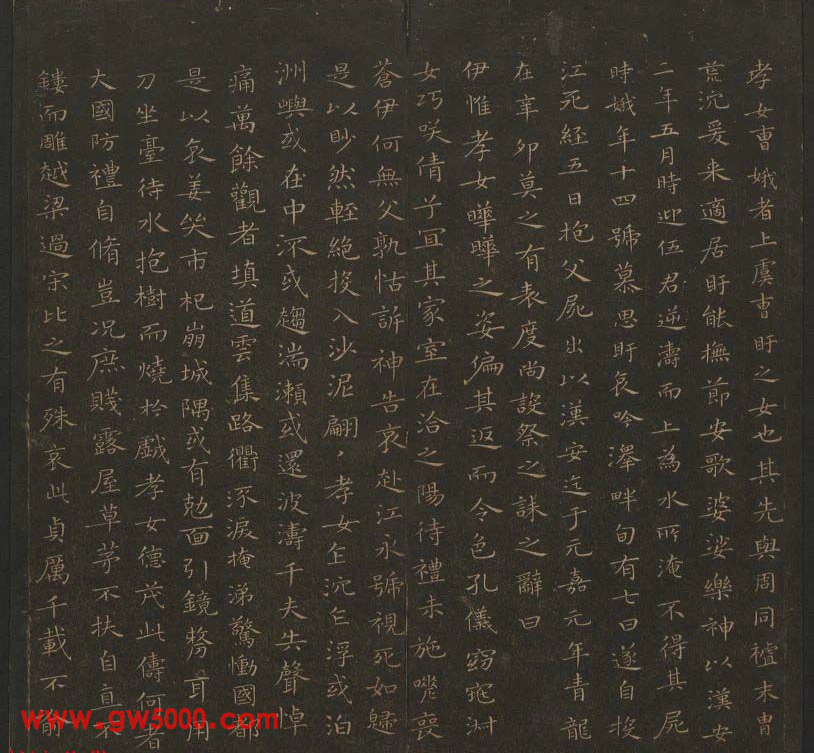 孝女曹娥者上虞曹盱之女也其先與周同祖末胄
荒沉爰来適居盱能撫節安歌婆娑樂神以漢安
二年五月時迎伍君逆濤而上為水所淹不得其屍
時娥年十四號慕思盱哀吟澤畔旬有七日遂自投
江死經五日抱父屍出以漢安迄于元嘉元年青龍
在辛卯莫之有表度尚設祭之誄之辭曰
伊惟孝女曄曄之姿偏其返而令色孔儀窈窕淑
女巧咲倩兮宜其家室在洽之陽待禮未施嗟喪
蒼伊何無父孰怙訴神告哀赴江永號視死如歸
是以眇然輕絶投入沙泥翩〻孝女乍沉乍浮或泊
洲嶼或在中流或趨湍瀨或還波濤千夫失聲悼
痛萬餘觀者填道雲集路衢流淚掩涕驚慟國都
是以哀姜哭市杞崩城隅或有剋面引鏡剺耳用
刀坐臺待水抱樹而燒於戲孝女德茂此儔何者
大國防禮自脩豈況庶賤露屋草茅不扶自直不
鏤而雕越梁過宋比之有殊哀此貞厲千載不渝
www.gw5000.com